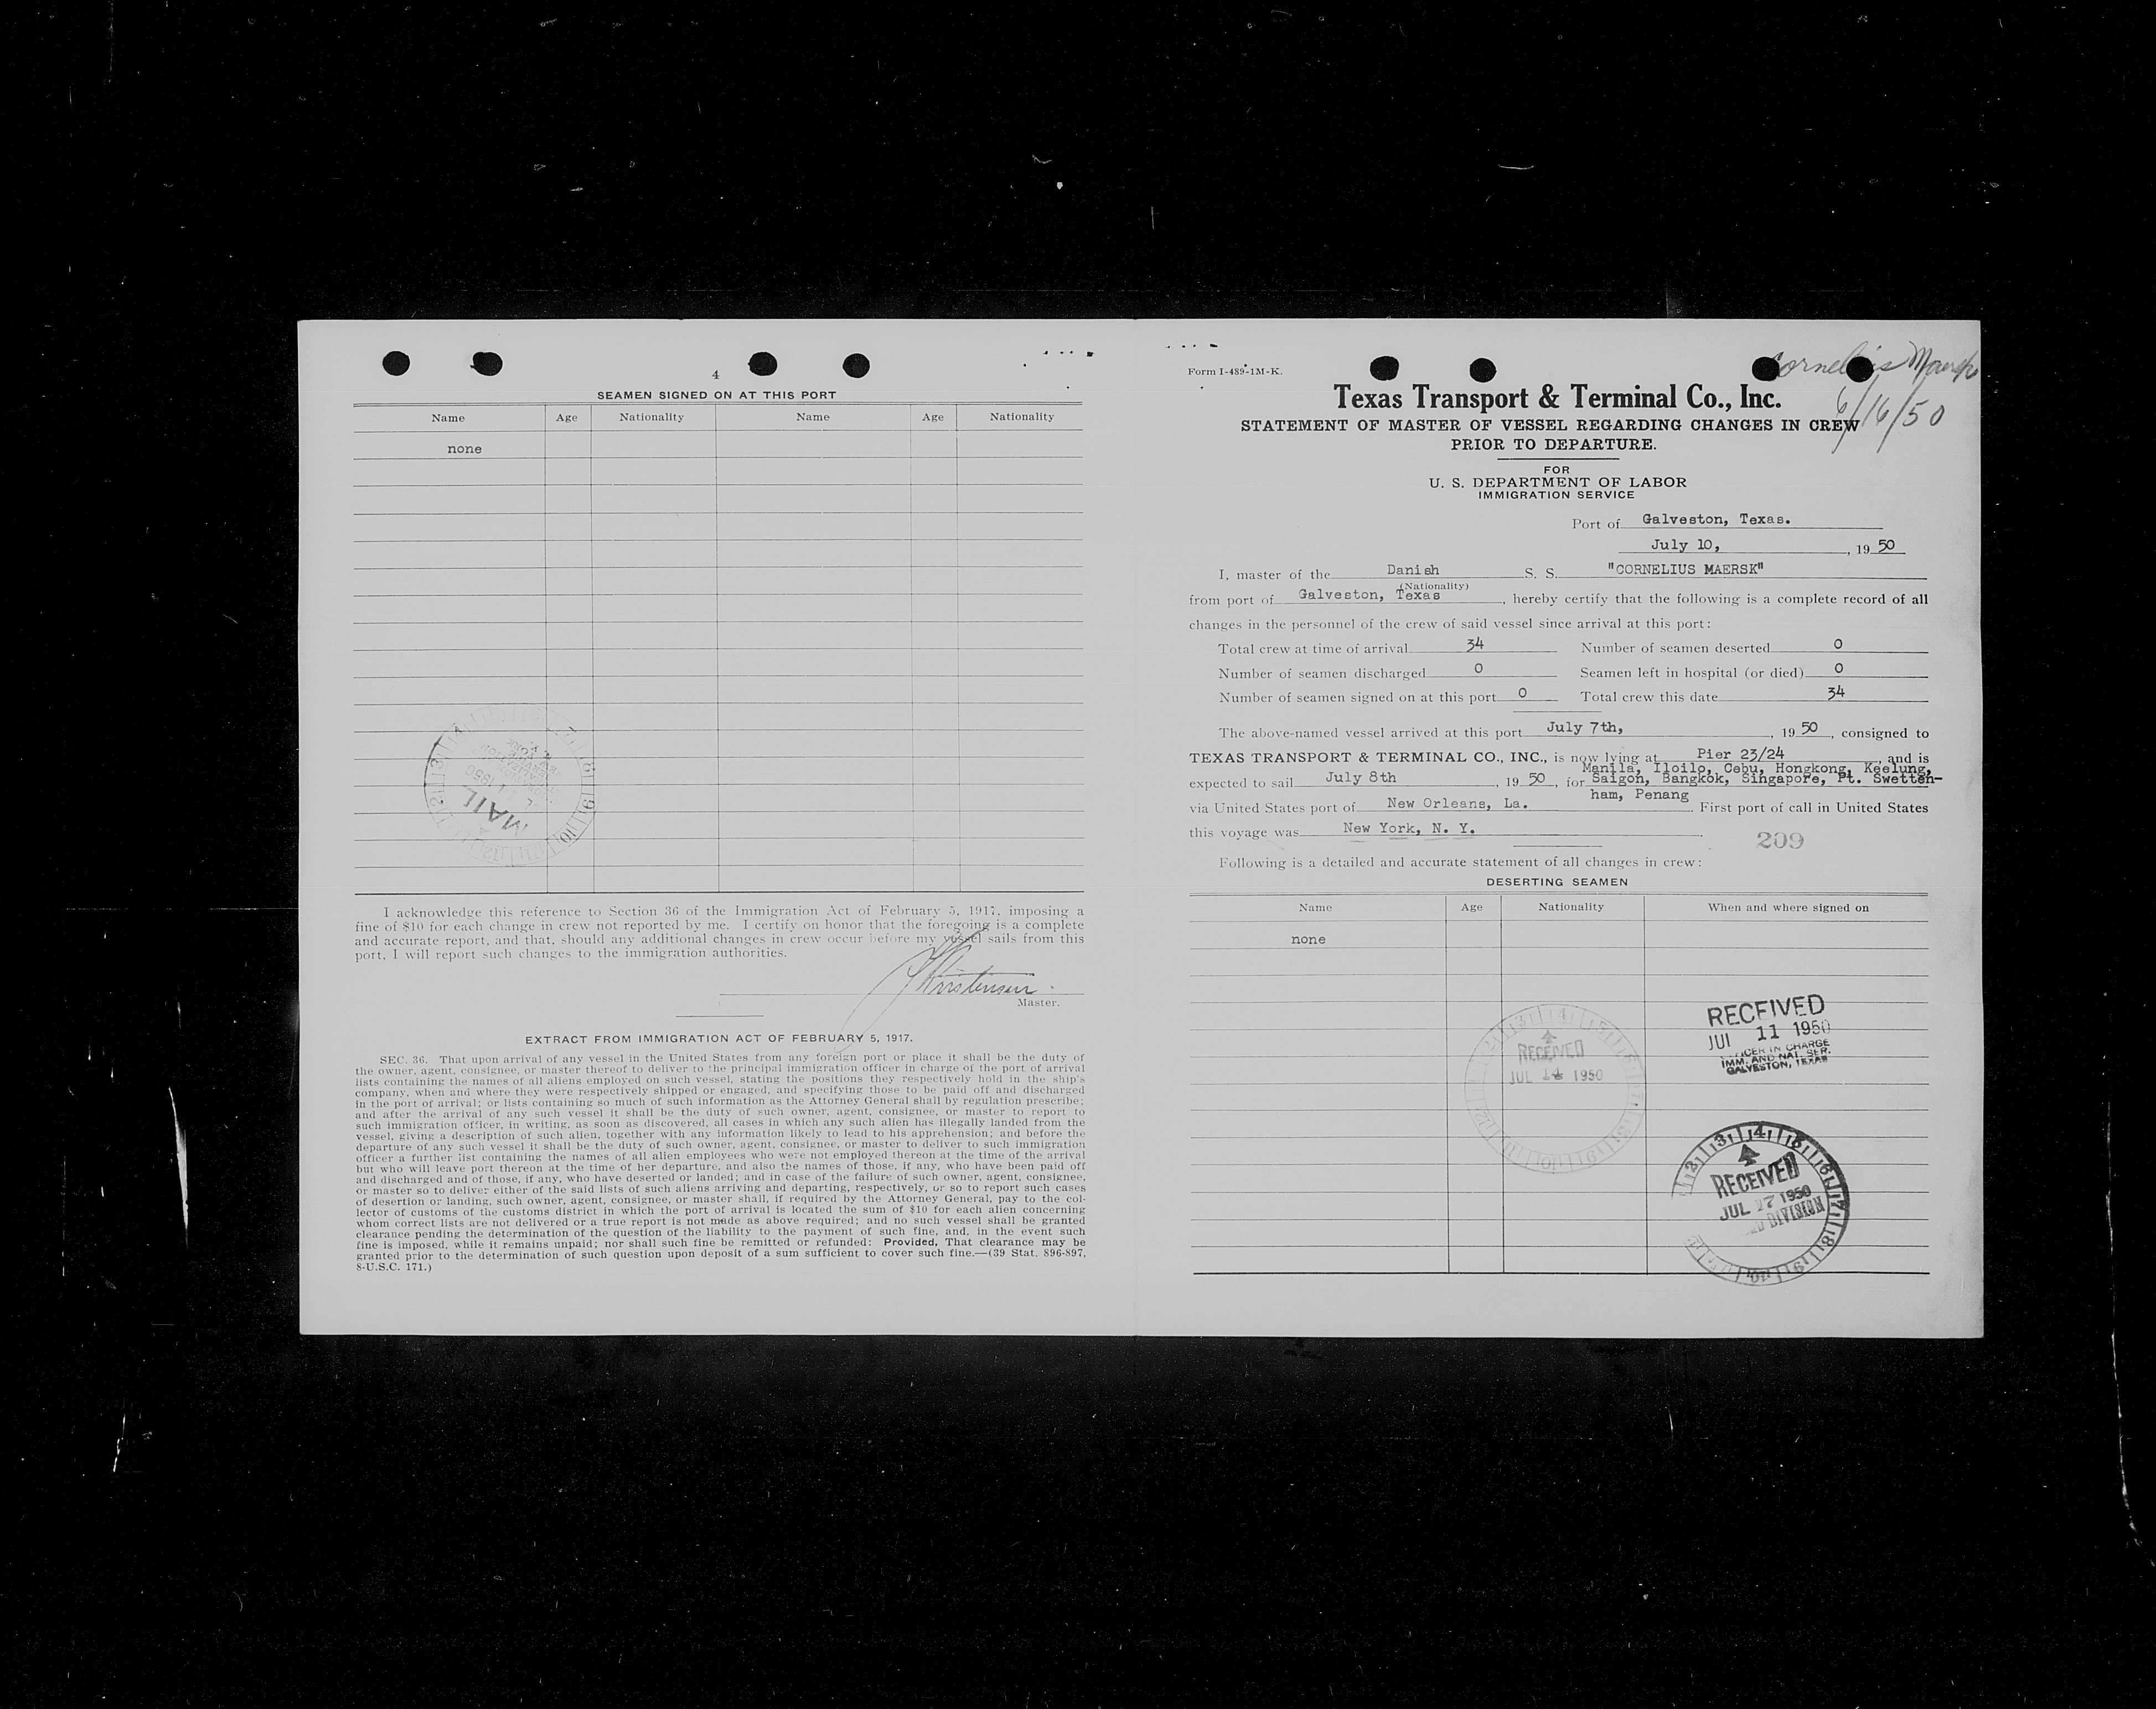 4
SEAMEN SIGNED ON AT THIS PORT
Name Age Nationality Name Age Nationality
none
MAIL
I acknowledge this reference to Section 36 of the Immigration Act of February 5, 1917, imposing a
fine of $10 for each change in crew not reported by me. I certify on honor that the foregoing is a complete
and accurate report, and that, should any additional changes in crew occur before my vessel sails from this
port, I will report such changes to the immigration authorities.
Kristensen
Master.
EXTRACT FROM IMMIGRATION ACT OF FEBRUARY 5, 1917.
SEC. 36. That upon arrival of any vessel in the United States from any foreign port or place it shall be the duty of
the owner, agent, consignee, or master thereof to deliver to the principal immigration officer in charge of the port of arrival
lists containing the names of all aliens employed on such vessel, stating the positions they respectively hold in the ship's
company, when and where they were respectively shipped or engaged, and specifying those to be paid off and discharged
in the port of arrival; or lists containing so much of such information as the Attorney General shall by regulation prescribe;
and after the arrival of any such vessel it shall be the duty of such owner, agent, consignee, or master to report to
such immigration officer, in writing, as soon as discovered, all cases in which any such alien has illegally landed from the
vessel, giving a description of such alien, together with any information likely to lead to his apprehension; and before the
departure of any such vessel it shall be the duty of such owner, agent, consignee, or master to deliver to such immigration
officer a further list containing the names of all alien employees who were not employed thereon at the time of the arrival
but who will leave port thereon at the time of her departure, and also the names of those, if any, who have been paid off
and discharged and of those, if any, who have deserted or landed; and in case of the failure of such owner, agent, consignee,
or master so to deliver either of the said lists of such aliens arriving and departing, respectively, or so to report such cases
of desertion or landing, such owner, agent, consignee, or master shall, if required by the Attorney General, pay to the col-
lector of customs of the customs district in which the port of arrival is located the sum of $10 for each alien concerning
whom correct lists are not delivered or a true report is not made as above required; and no such vessel shall be granted
clearance pending the determination of the question of the liability to the payment of such fine, and, in the event such
fine is imposed, while it remains unpaid; nor shall such fine be remitted or refunded: Provided, That clearance may be
granted prior to the determination of such question upon deposit of a sum sufficient to cover such fine.—(39 Stat. 896-897,
8-U.S.C. 171.)
Form I-489-1M-K.
Cornelius Maersk
6/16/50
Texas Transport & Terminal Co., Inc.
STATEMENT OF MASTER OF VESSEL REGARDING CHANGES IN CREW
PRIOR TO DEPARTURE.
FOR
U. S. DEPARTMENT OF LABOR
IMMIGRATION SERVICE
Port of Galveston, Texas.
July 10, , 19 50
I, master of the Danish S. S. "CORNELIUS MAERSK"
(Nationality)
from port of Galveston, Texas , hereby certify that the following is a complete record of all
changes in the personnel of the crew of said vessel since arrival at this port:
Total crew at time of arrival 34 Number of seamen deserted 0
Number of seamen discharged 0 Seamen left in hospital (or died) 0
Number of seamen signed on at this port 0 Total crew this date 34
The above-named vessel arrived at this port July 7th, , 19 50 , consigned to
TEXAS TRANSPORT & TERMINAL CO., INC., is now lying at Pier 23/24 , and is
Manila, Iloilo, Cebu, Hongkong, Keelung,
expected to sail July 8th , 19 50 , for Saigon, Bangkok, Singapore, Pt. Swetten-
ham, Penang
via United States port of New Orleans, La. First port of call in United States
this voyage was New York, N. Y.
209
Following is a detailed and accurate statement of all changes in crew:
DESERTING SEAMEN
Name Age Nationality When and where signed on
none
RECEIVED
JUL 11 1950
OFFICER IN CHARGE
IMM. AND NAT. SER.
GALVESTON, TEXAS
RECEIVED
JUL 1950
RECEIVED
JUL 17 1950
DIVISION